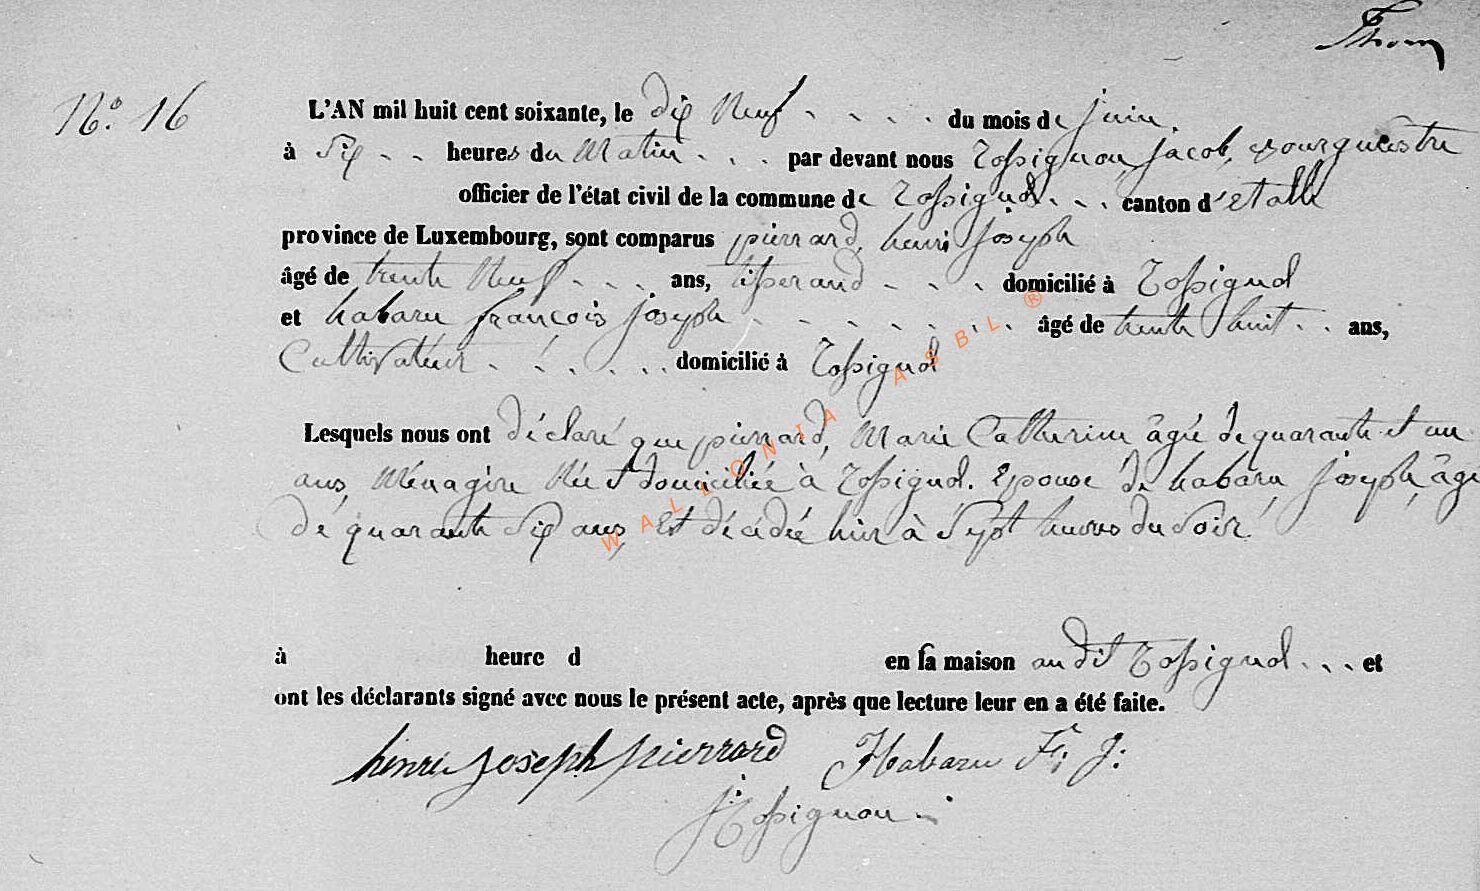 Thom
N° 16
L'AN mil huit cent soixante, le dix Neuf . . . . du mois de juin.
à Six . . heures du Matin . . . par devant nous Rossignon, jacob, Bourguestre
officier de l'état civil de la commune de Rossignol . . . canton d'etalle
province de Luxembourg, sont comparus pierrard, henri joseph
âgé de trente Neuf . . . . ans, tisserand . . . domicilié à Rossignol
et habaru françois joseph . . . . . . . . âgé de trente huit . . ans,
Cultivateur . . . . . . domicilié à Rossignol
Lesquels nous ont déclaré que pierrard, Marie Catherine âgée de quarante et un
ans, Ménagère Née et domiciliée à Rossignol. Epouse de habaru joseph, âgé
de quarante Six ans, Est décédée hier à Sept heures du Soir.
à heure d en sa maison au dit Rossignol . . . et
ont les déclarants signé avec nous le présent acte, après que lecture leur en a été faite.
henri joseph pierrard Habaru F. J.
J Rossignon
WALLONIA ASBL ®